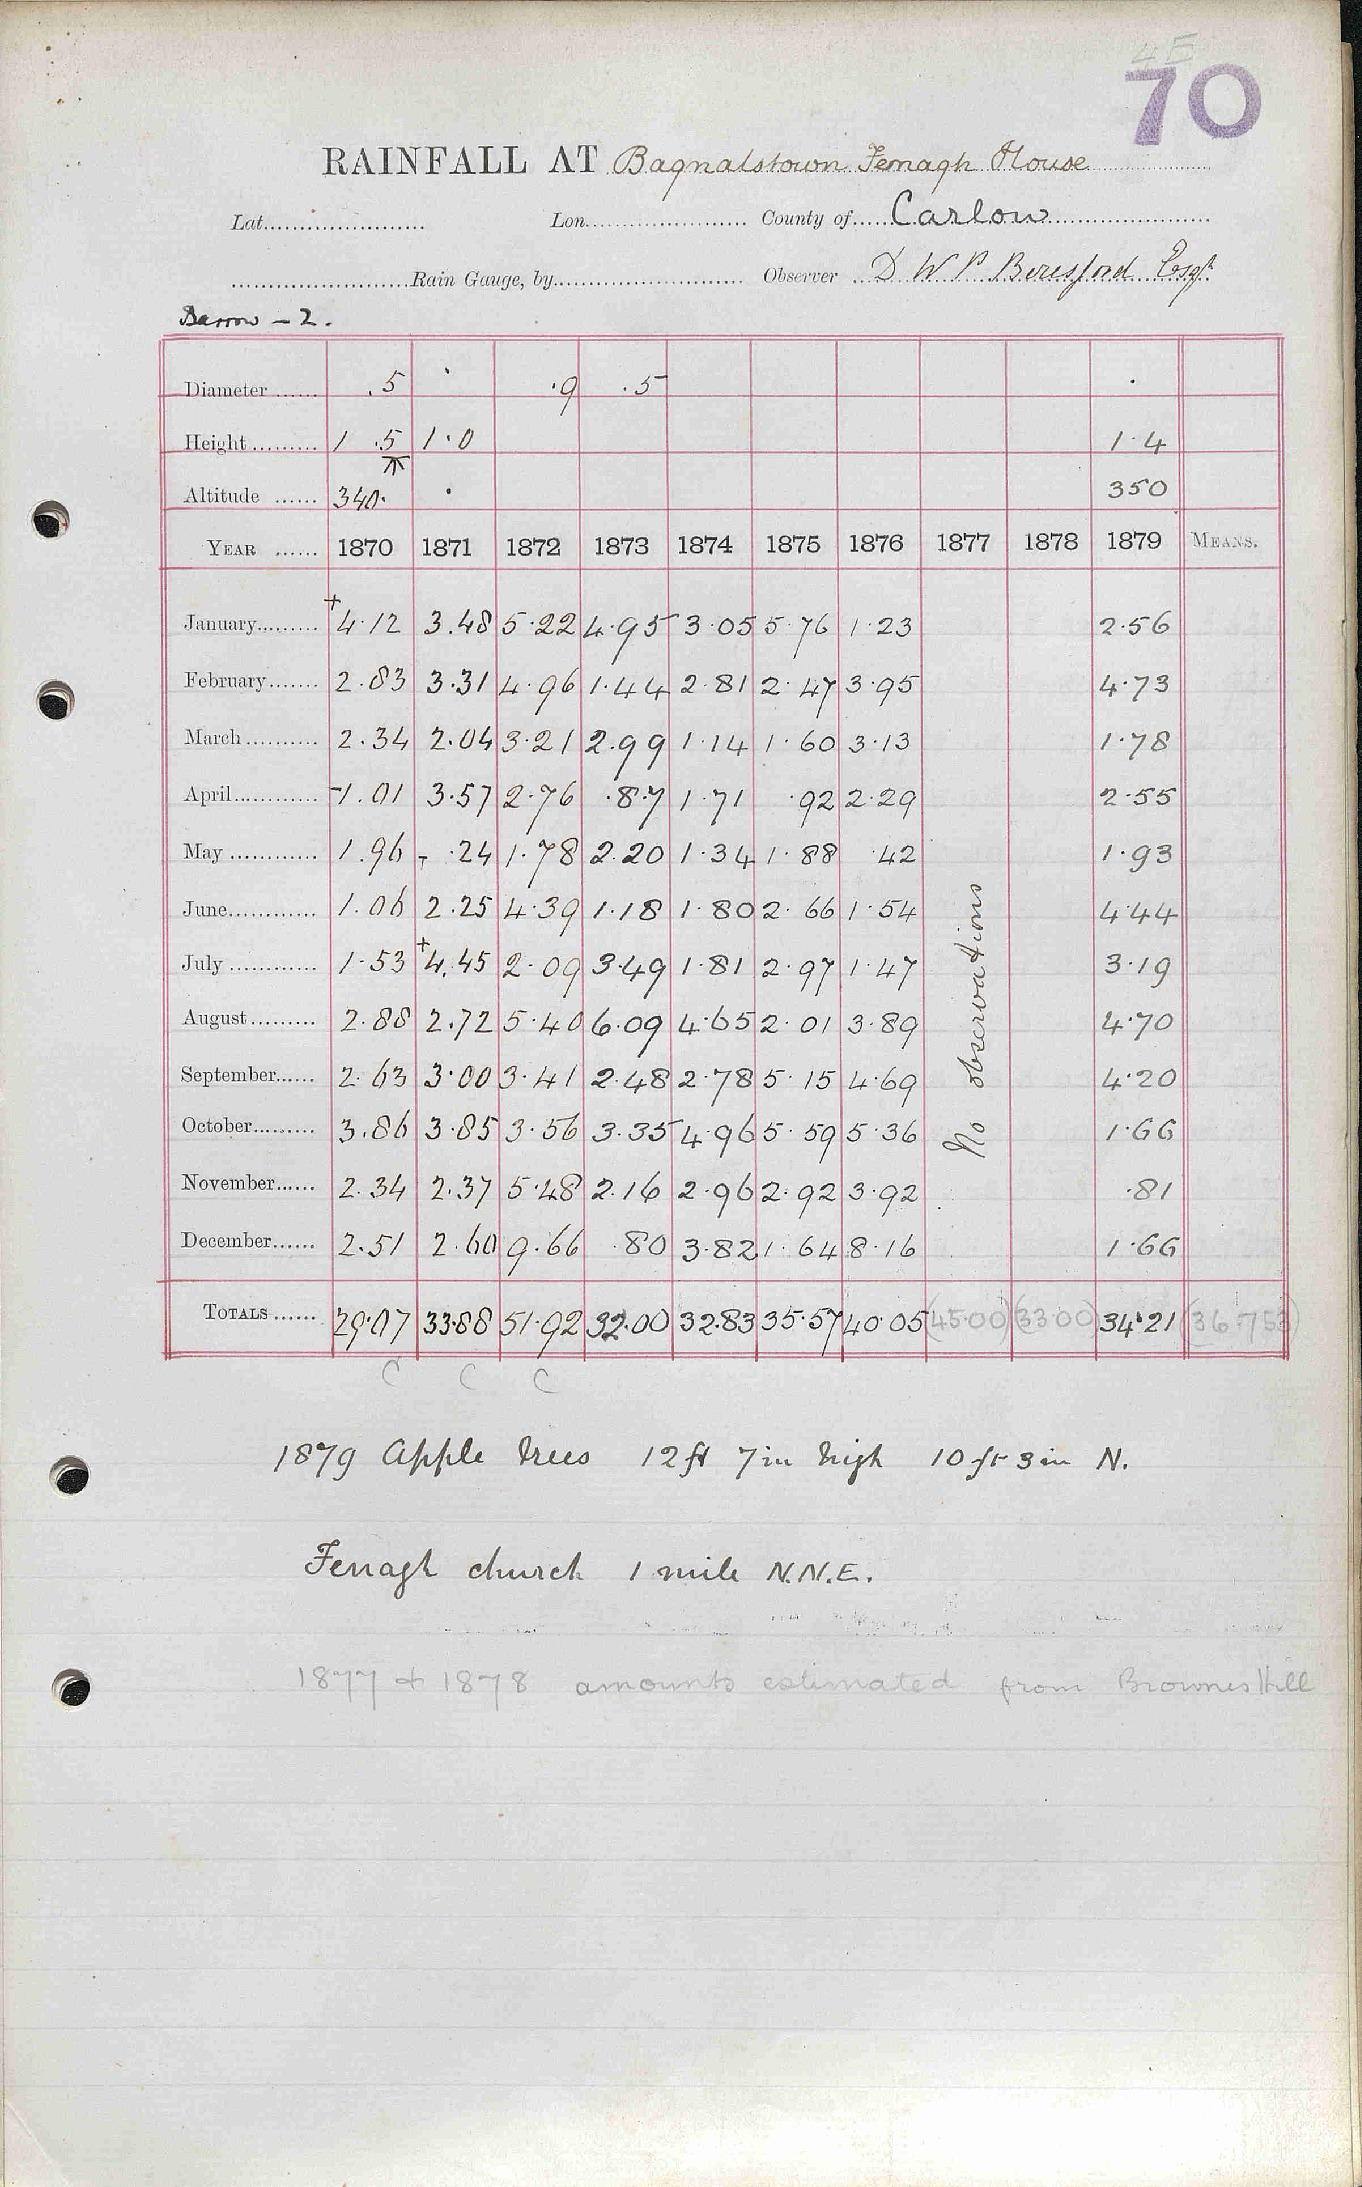 4E
70
RAINFALL AT Bagnalstown Fenagh House
Lat. Lon. County of Carlow
Rain Gauge, by Observer D W P Beresford Esqr
Barrow - 2.
Diameter .5 · .9 .5 ·
Height 1 .5 1.0 1.4
Altitude 340. · 350
YEAR 1870 1871 1872 1873 1874 1875 1876 1877 1878 1879 MEANS.
January +4.12 3.48 5.22 4.95 3.05 5.76 1.23 2.56
February 2.83 3.31 4.96 1.44 2.81 2.47 3.95 4.73
March 2.34 2.04 3.21 2.99 1.14 1.60 3.13 1.78
April -1.01 3.57 2.76 .87 1.71 .92 2.29 2.55
May 1.96 - .24 1.78 2.20 1.34 1.88 .42 1.93
June 1.06 2.25 4.39 1.18 1.80 2.66 1.54 4.44
July 1.53 +4.45 2.09 3.49 1.81 2.97 1.47 3.19
August 2.88 2.72 5.40 6.09 4.65 2.01 3.89 4.70
September 2.63 3.00 3.41 2.48 2.78 5.15 4.69 4.20
October 3.86 3.85 3.56 3.35 4.96 5.59 5.36 1.66
November 2.34 2.37 5.48 2.16 2.96 2.92 3.92 .81
December 2.51 2.60 9.66 .80 3.82 1.64 8.16 1.66
No observations
TOTALS 29.07 33.88 51.92 32.00 32.83 35.57 40.05 (45.00) (33.00) 34.21 (36.753)
C C C
1879 Apple trees 12 ft 7 in high 10 ft 3 in N.
Fenagh church 1 mile N.N.E.
1877 & 1878 amounts estimated from Brownes Hill